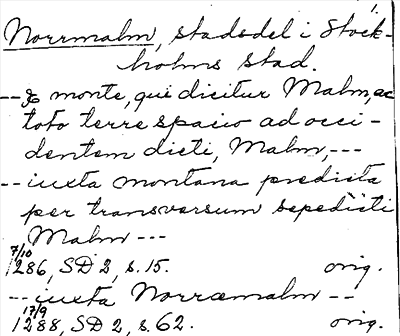 1.
Norrmalm, stadsdel i Stock-
holms stad.
-- monte, qui dicitur Malm, ac
toto terre spacio ad occi-
dentem dicti, Malm, ---
-- iuxta montana predicta
per transversum sepedicti
Malm ---
7/10
1286, SD 2, s. 15. orig.
-- iuxta Norræmalm --
17/9
1288, SD 2, s. 62. orig.